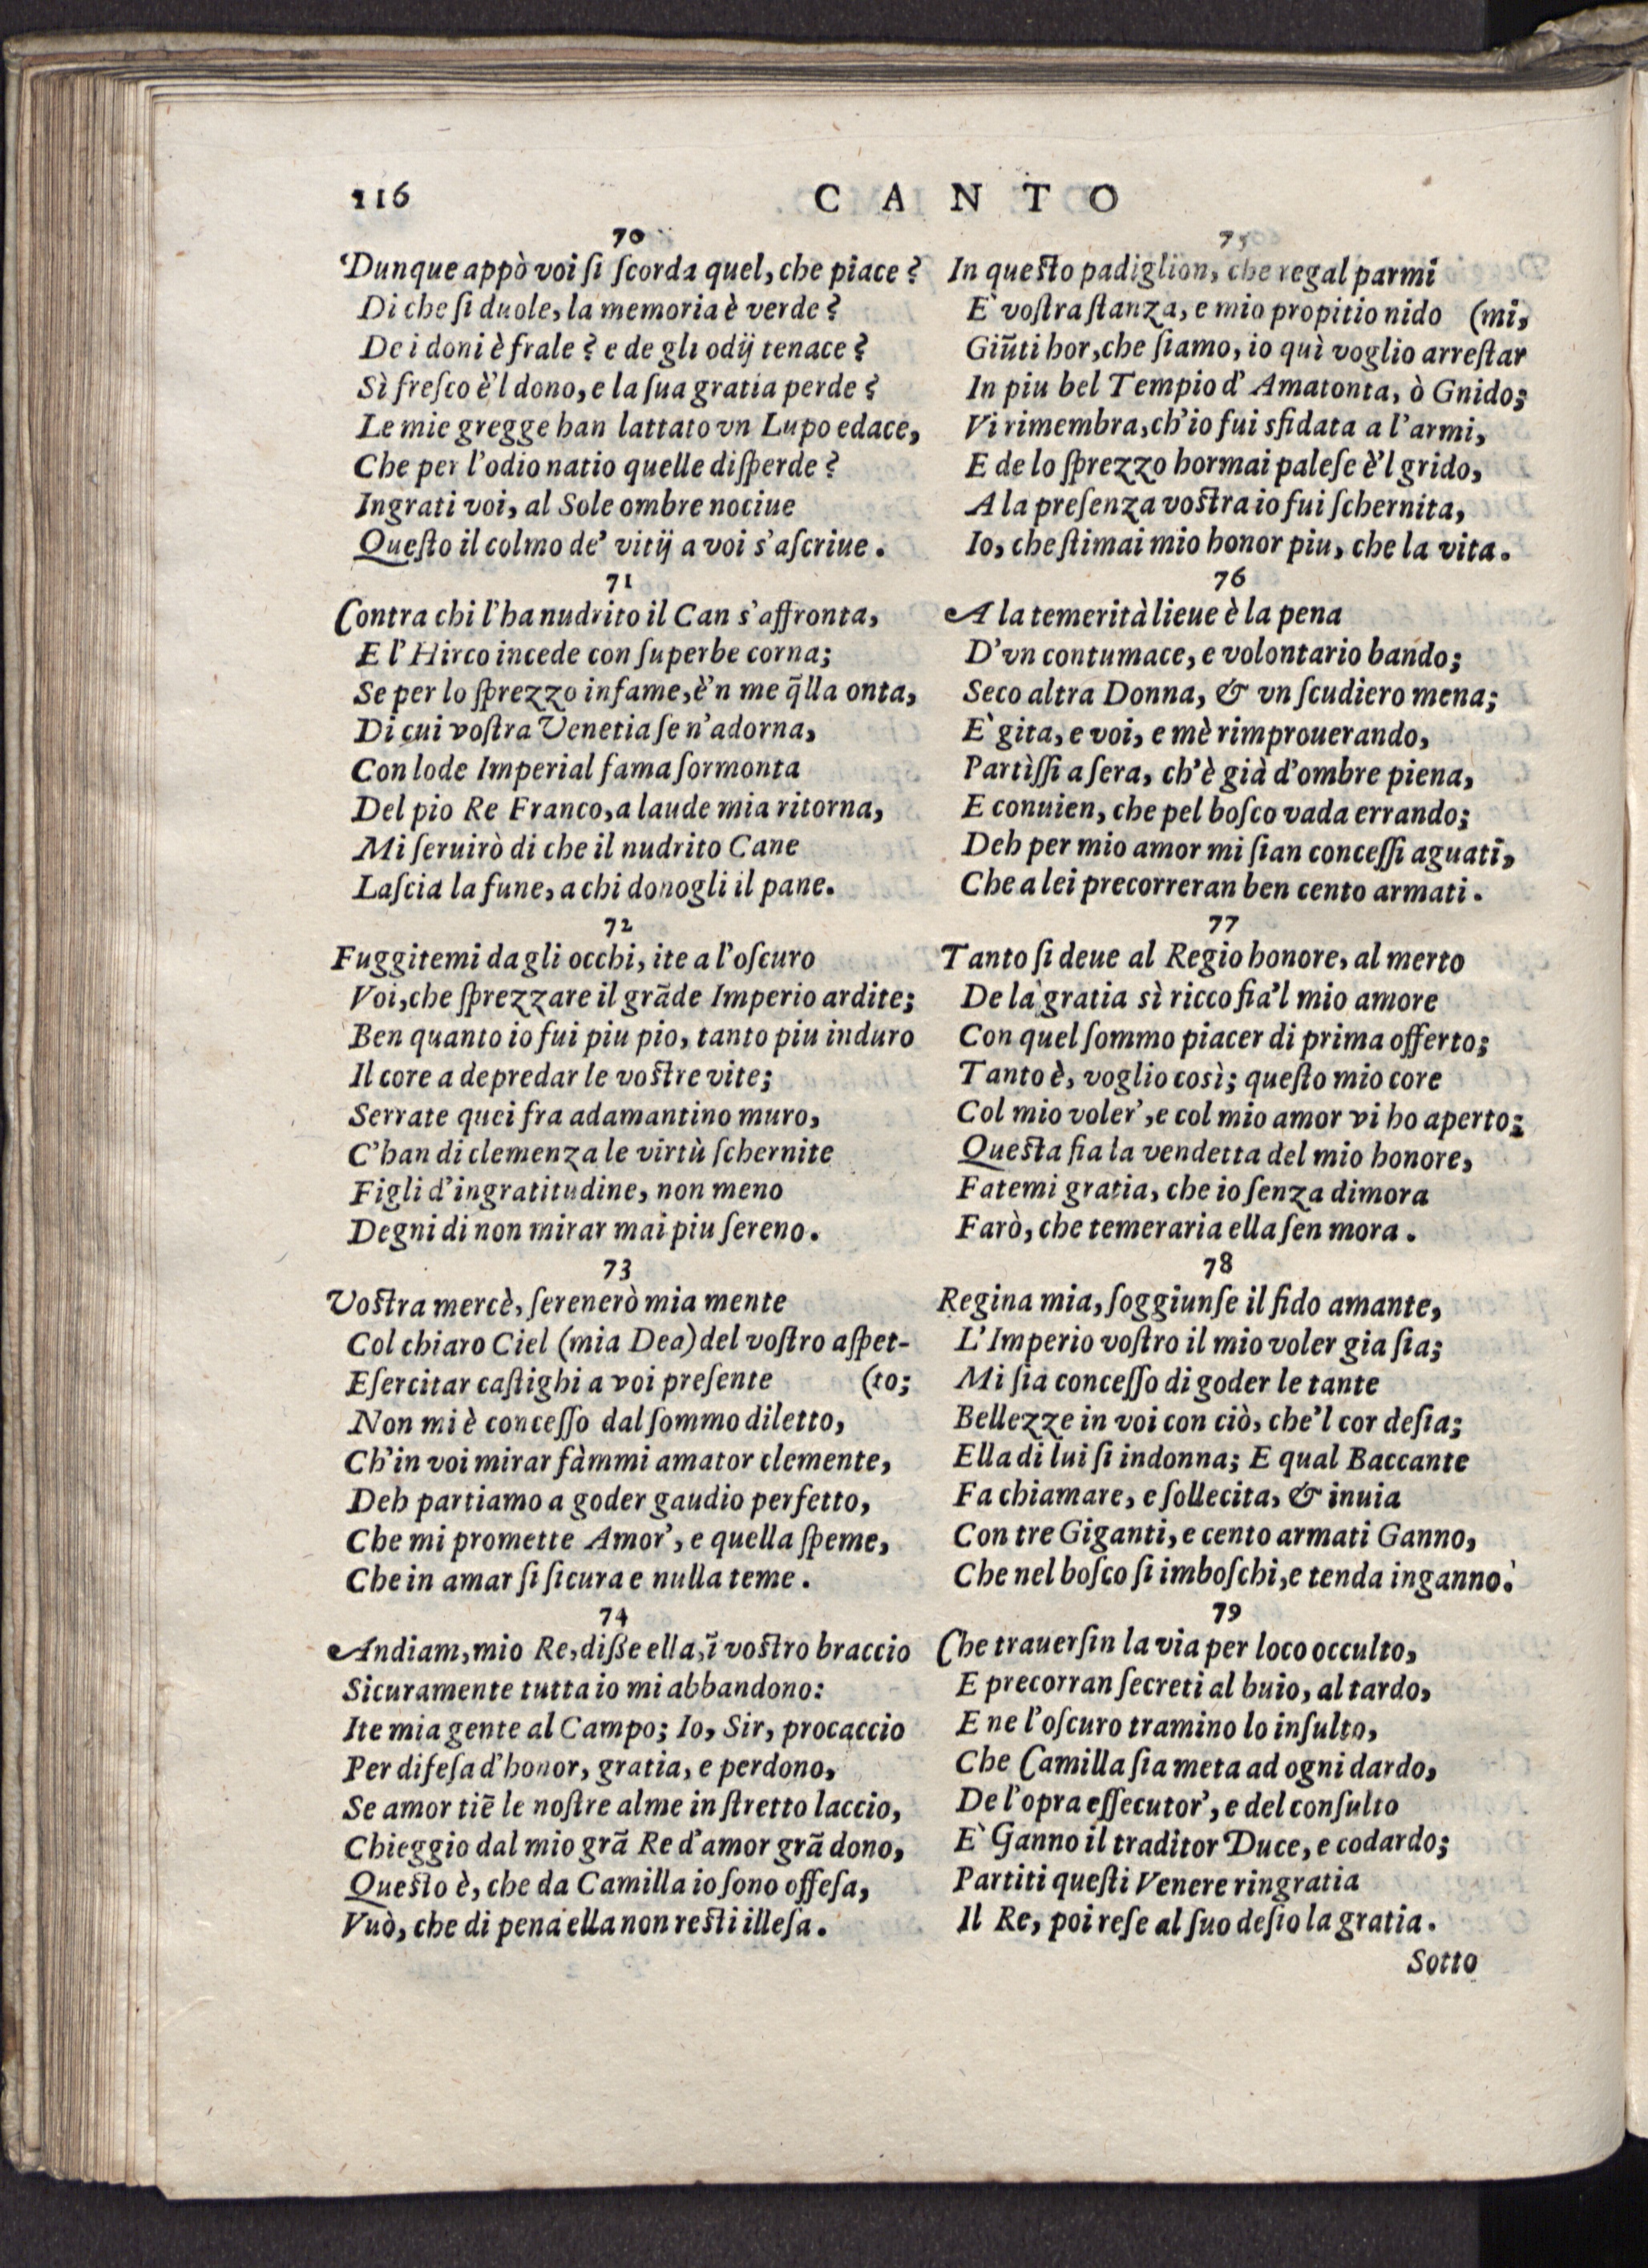 116
CANTO
70
Dunque appò voi ſi ſcorda quel, che piace?
Di che ſi duole, la memoria è verde?
De i doni è frale? e de gli odij tenace?
Sì freſco è'l dono, e la ſua gratia perde?
Le mie gregge han lattato vn Lupo edace,
Che per l'odio natio quelle diſperde?
Ingrati voi, al Sole ombre nociue
Queſto il colmo de' vitij a voi s'aſcriue.
71
Contra chi l'ha nudrito il Can s'affronta,
E l'Hirco incede con ſuperbe corna;
Se per lo ſprezzo infame, è'n me q̃lla onta,
Di cui voſtra Venetia ſe n'adorna,
Con lode Imperial fama ſormonta
Del pio Re Franco, a laude mia ritorna,
Mi ſeruirò di che il nudrito Cane
Laſcia la fune, a chi donogli il pane.
72
Fuggitemi da gli occhi, ite a l'oſcuro
Voi, che ſprezzare il grãde Imperio ardite;
Ben quanto io fui piu pio, tanto piu induro
Il core a depredar le voſtre vite;
Serrate quei fra adamantino muro,
C'han di clemenza le virtù ſchernite
Figli d'ingratitudine, non meno
Degni di non mirar mai piu ſereno.
73
Voſtra mercè, ſerenerò mia mente
Col chiaro Ciel (mia Dea) del voſtro aſpet-
Eſercitar caſtighi a voi preſente (to;
Non mi è conceſſo dal ſommo diletto,
Ch'in voi mirar fàmmi amator clemente,
Deh partiamo a goder gaudio perfetto,
Che mi promette Amor', e quella ſpeme,
Che in amar ſi ſicura e nulla teme.
74
Andiam, mio Re, diße ella, ĩ voſtro braccio
Sicuramente tutta io mi abbandono:
Ite mia gente al Campo; Io, Sir, procaccio
Per difeſa d'honor, gratia, e perdono,
Se amor tiẽ le noſtre alme in ſtretto laccio,
Chieggio dal mio grã Re d'amor grã dono,
Queſto è, che da Camilla io ſono offeſa,
Vuò, che di pena ella non reſti illeſa.
75
In queſto padiglion, che regal parmi
E' voſtra ſtanza, e mio propitio nido (mi,
Giũti hor, che ſiamo, io quì voglio arreſtar
In piu bel Tempio d'Amatonta, ò Gnido;
Vi rimembra, ch'io fui sfidata a l'armi,
E de lo ſprezzo hormai paleſe è'l grido,
A la preſenza voſtra io fui ſchernita,
Io, che ſtimai mio honor piu, che la vita.
76
A la temerità lieue è la pena
D'vn contumace, e volontario bando;
Seco altra Donna, & vn ſcudiero mena;
E' gita, e voi, e mè rimprouerando,
Partìſſi a ſera, ch'è già d'ombre piena,
E conuien, che pel boſco vada errando;
Deh per mio amor mi ſian conceſſi aguati,
Che a lei precorreran ben cento armati.
77
Tanto ſi deue al Regio honore, al merto
De la gratia sì ricco fia'l mio amore
Con quel ſommo piacer di prima offerto;
Tanto è, voglio così; queſto mio core
Col mio voler', e col mio amor vi ho aperto;
Queſta fia la vendetta del mio honore,
Fatemi gratia, che io ſenza dimora
Farò, che temeraria ella ſen mora.
78
Regina mia, ſoggiunſe il fido amante,
L'Imperio voſtro il mio voler gia ſia;
Mi ſia conceſſo di goder le tante
Bellezze in voi con ciò, che'l cor deſia;
Ella di lui ſi indonna; E qual Baccante
Fa chiamare, e ſollecita, & inuia
Con tre Giganti, e cento armati Ganno,
Che nel boſco ſi imboſchi, e tenda inganno.
79
Che trauerſin la via per loco occulto,
E precorran ſecreti al buio, al tardo,
E ne l'oſcuro tramino lo inſulto,
Che Camilla ſia meta ad ogni dardo,
De l'opra eſſecutor', e del conſulto
E' Ganno il traditor Duce, e codardo;
Partiti queſti Venere ringratia
Il Re, poi reſe al ſuo deſio la gratia.
Sotto